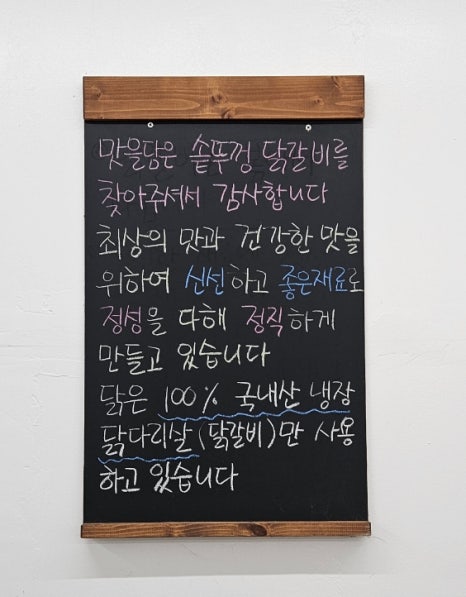 맛을담은 솥뚜껑 닭갈비를
찾아주셔서 감사합니다
최상의 맛과 건강한 맛을
위하여 신선하고 좋은재료로
정성을 다해 정직하게
만들고 있습니다
닭은 100% 국내산 냉장
닭다리살(닭갈비)만 사용
하고 있습니다